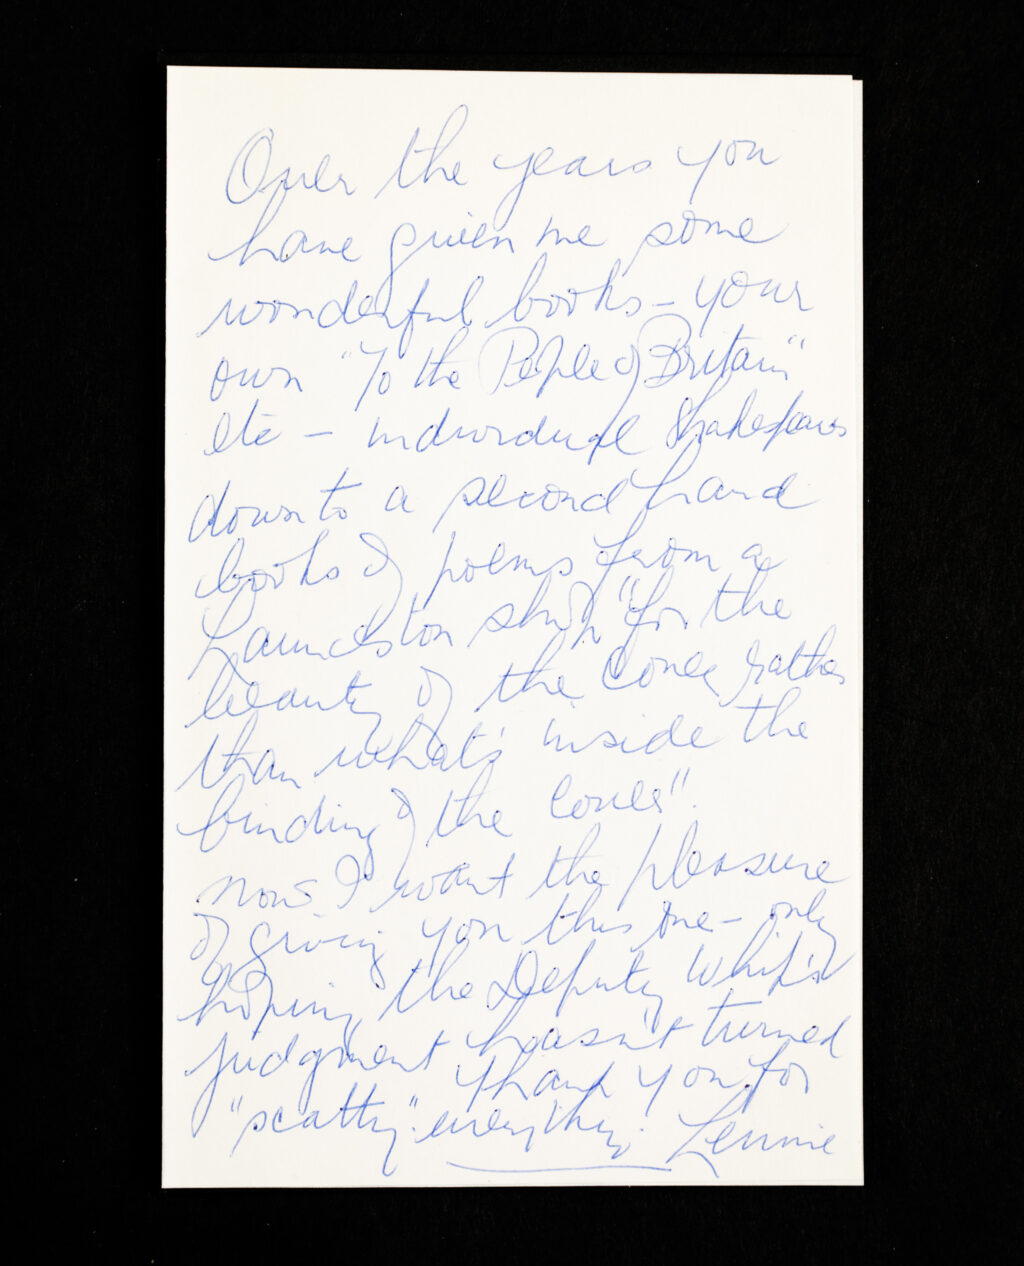 Over the years you
have given me some
wonderful books – your
own "To the People of Britain"
etc – individual Shakespeares
down to a second hand
books of poems from a
Launceston shop "for the
beauty of the cover rather
than what's inside the
binding of the cover".
Now I want the pleasure
of giving you this one – only
hoping the Deputy Whip's
judgment hasn't turned
"scatty". Thank you for
everything. Lennie